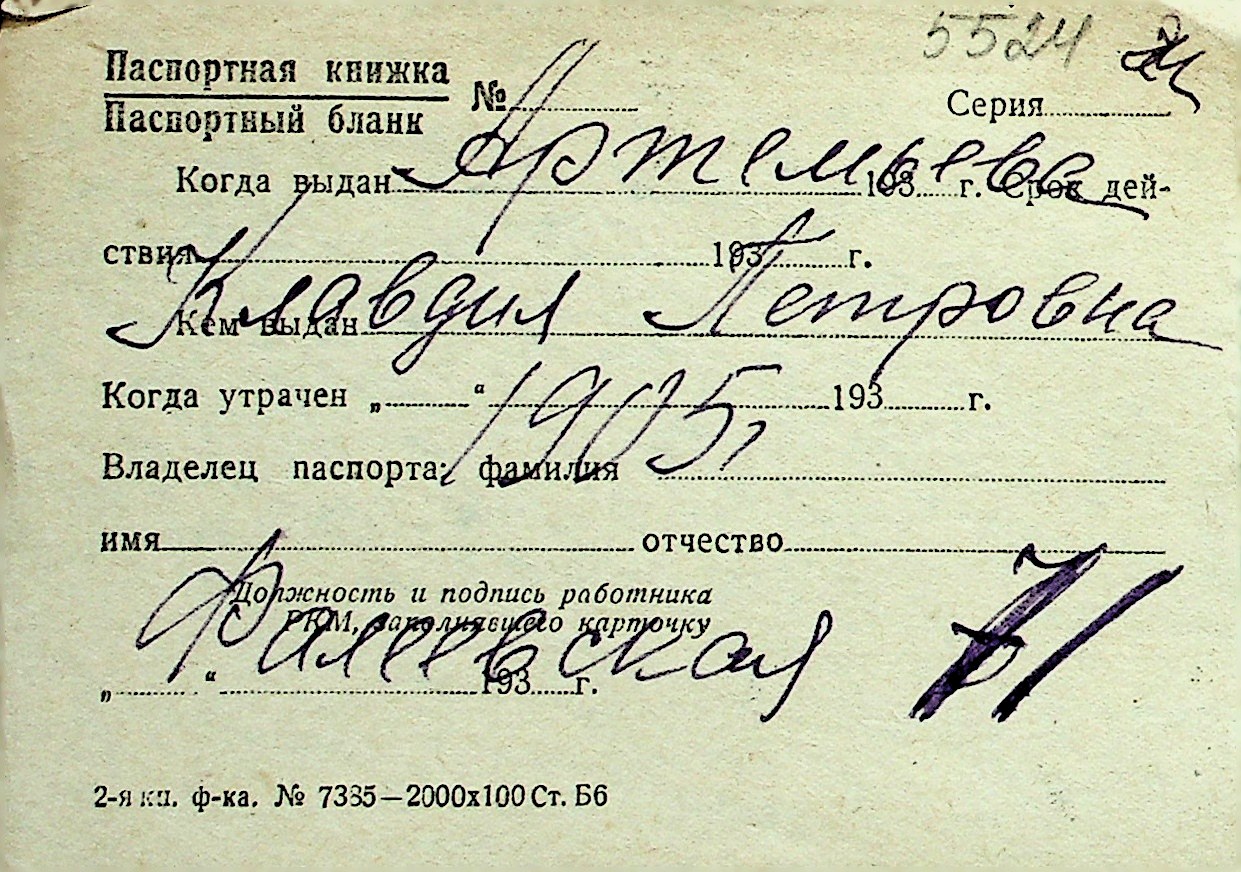 5524
Паспортная книжка
Паспортный бланк
№
Серия
Артемьева
Когда выдан 193 г. Срок дей-
ствия 193 г.
Клавдия Петровна
Кем выдан
Когда утрачен „ “ 193 г.
1905 г
Владелец паспорта: фамилия
имя отчество
Должность и подпись работника
РКМ, заполнявшего карточку
Фалеевская
„ “ 193 г.
2-я кн. ф-ка. № 7385—2000x100 Ст. Б6